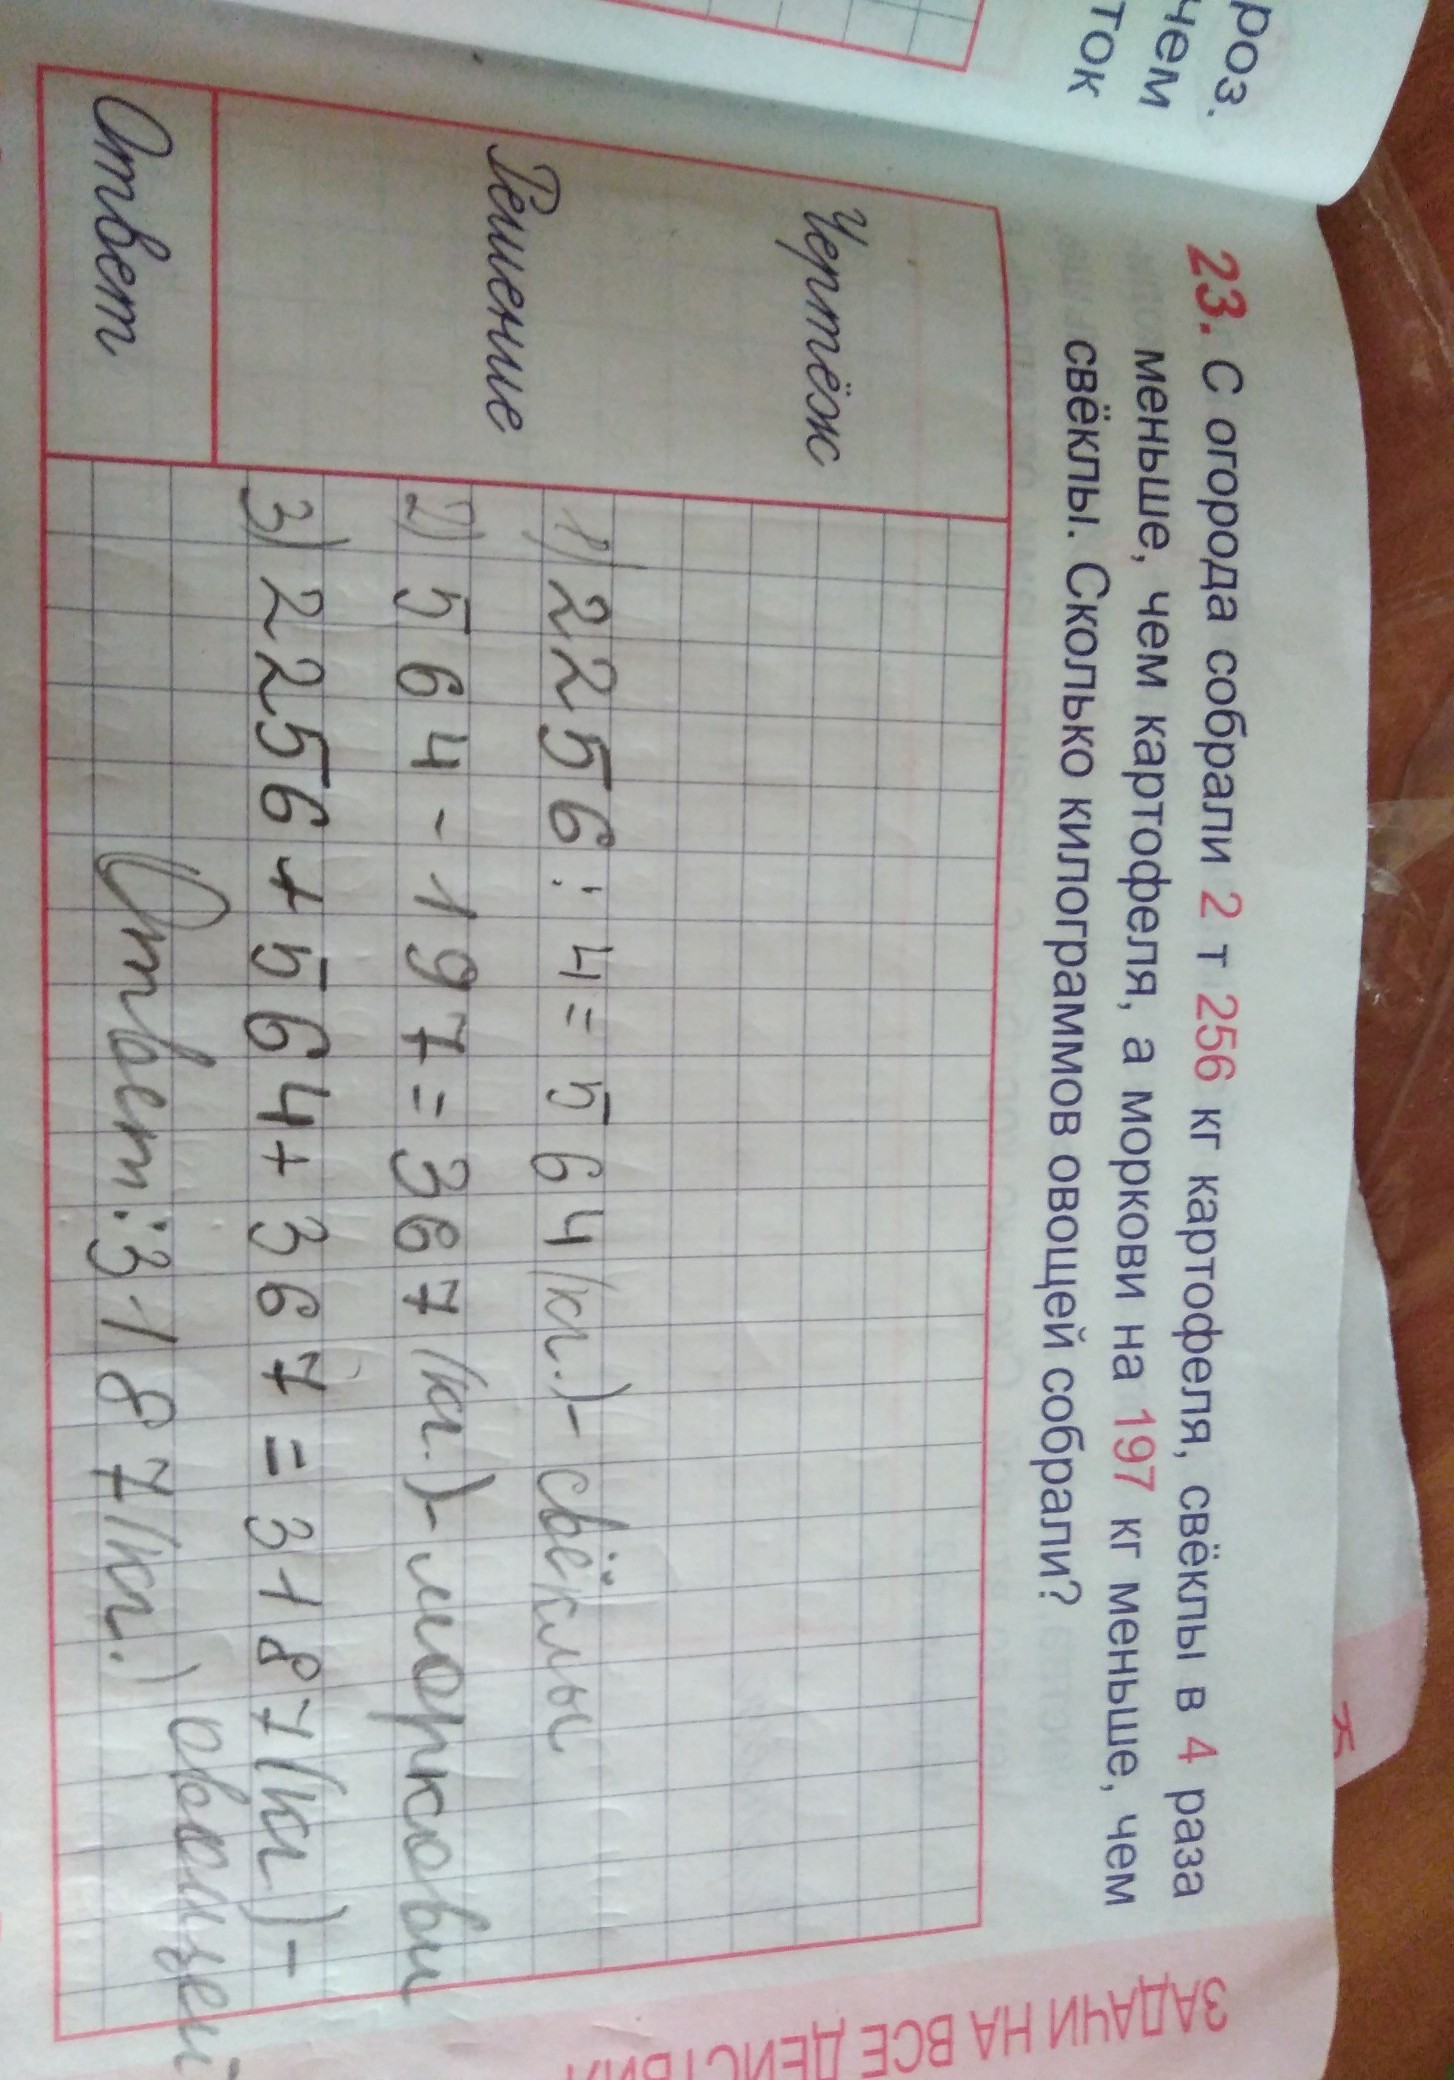 роз.
чем
ток
23. С огорода собрали 2 т 256 кг картофеля, свёклы в 4 раза
меньше, чем картофеля, а моркови на 197 кг меньше, чем
свёклы. Сколько килограммов овощей собрали?
Чертёж
Решение
1) 2256 : 4 = 564 (кг.) - свёклы
2) 564 - 197 = 367 (кг.) - моркови
3) 2256 + 564 + 367 = 3187 (кг.) -
овощей
Ответ
Ответ: 3187 (кг.)
ЗАДАЧИ НА ВСЕ ДЕЙСТВИЯ